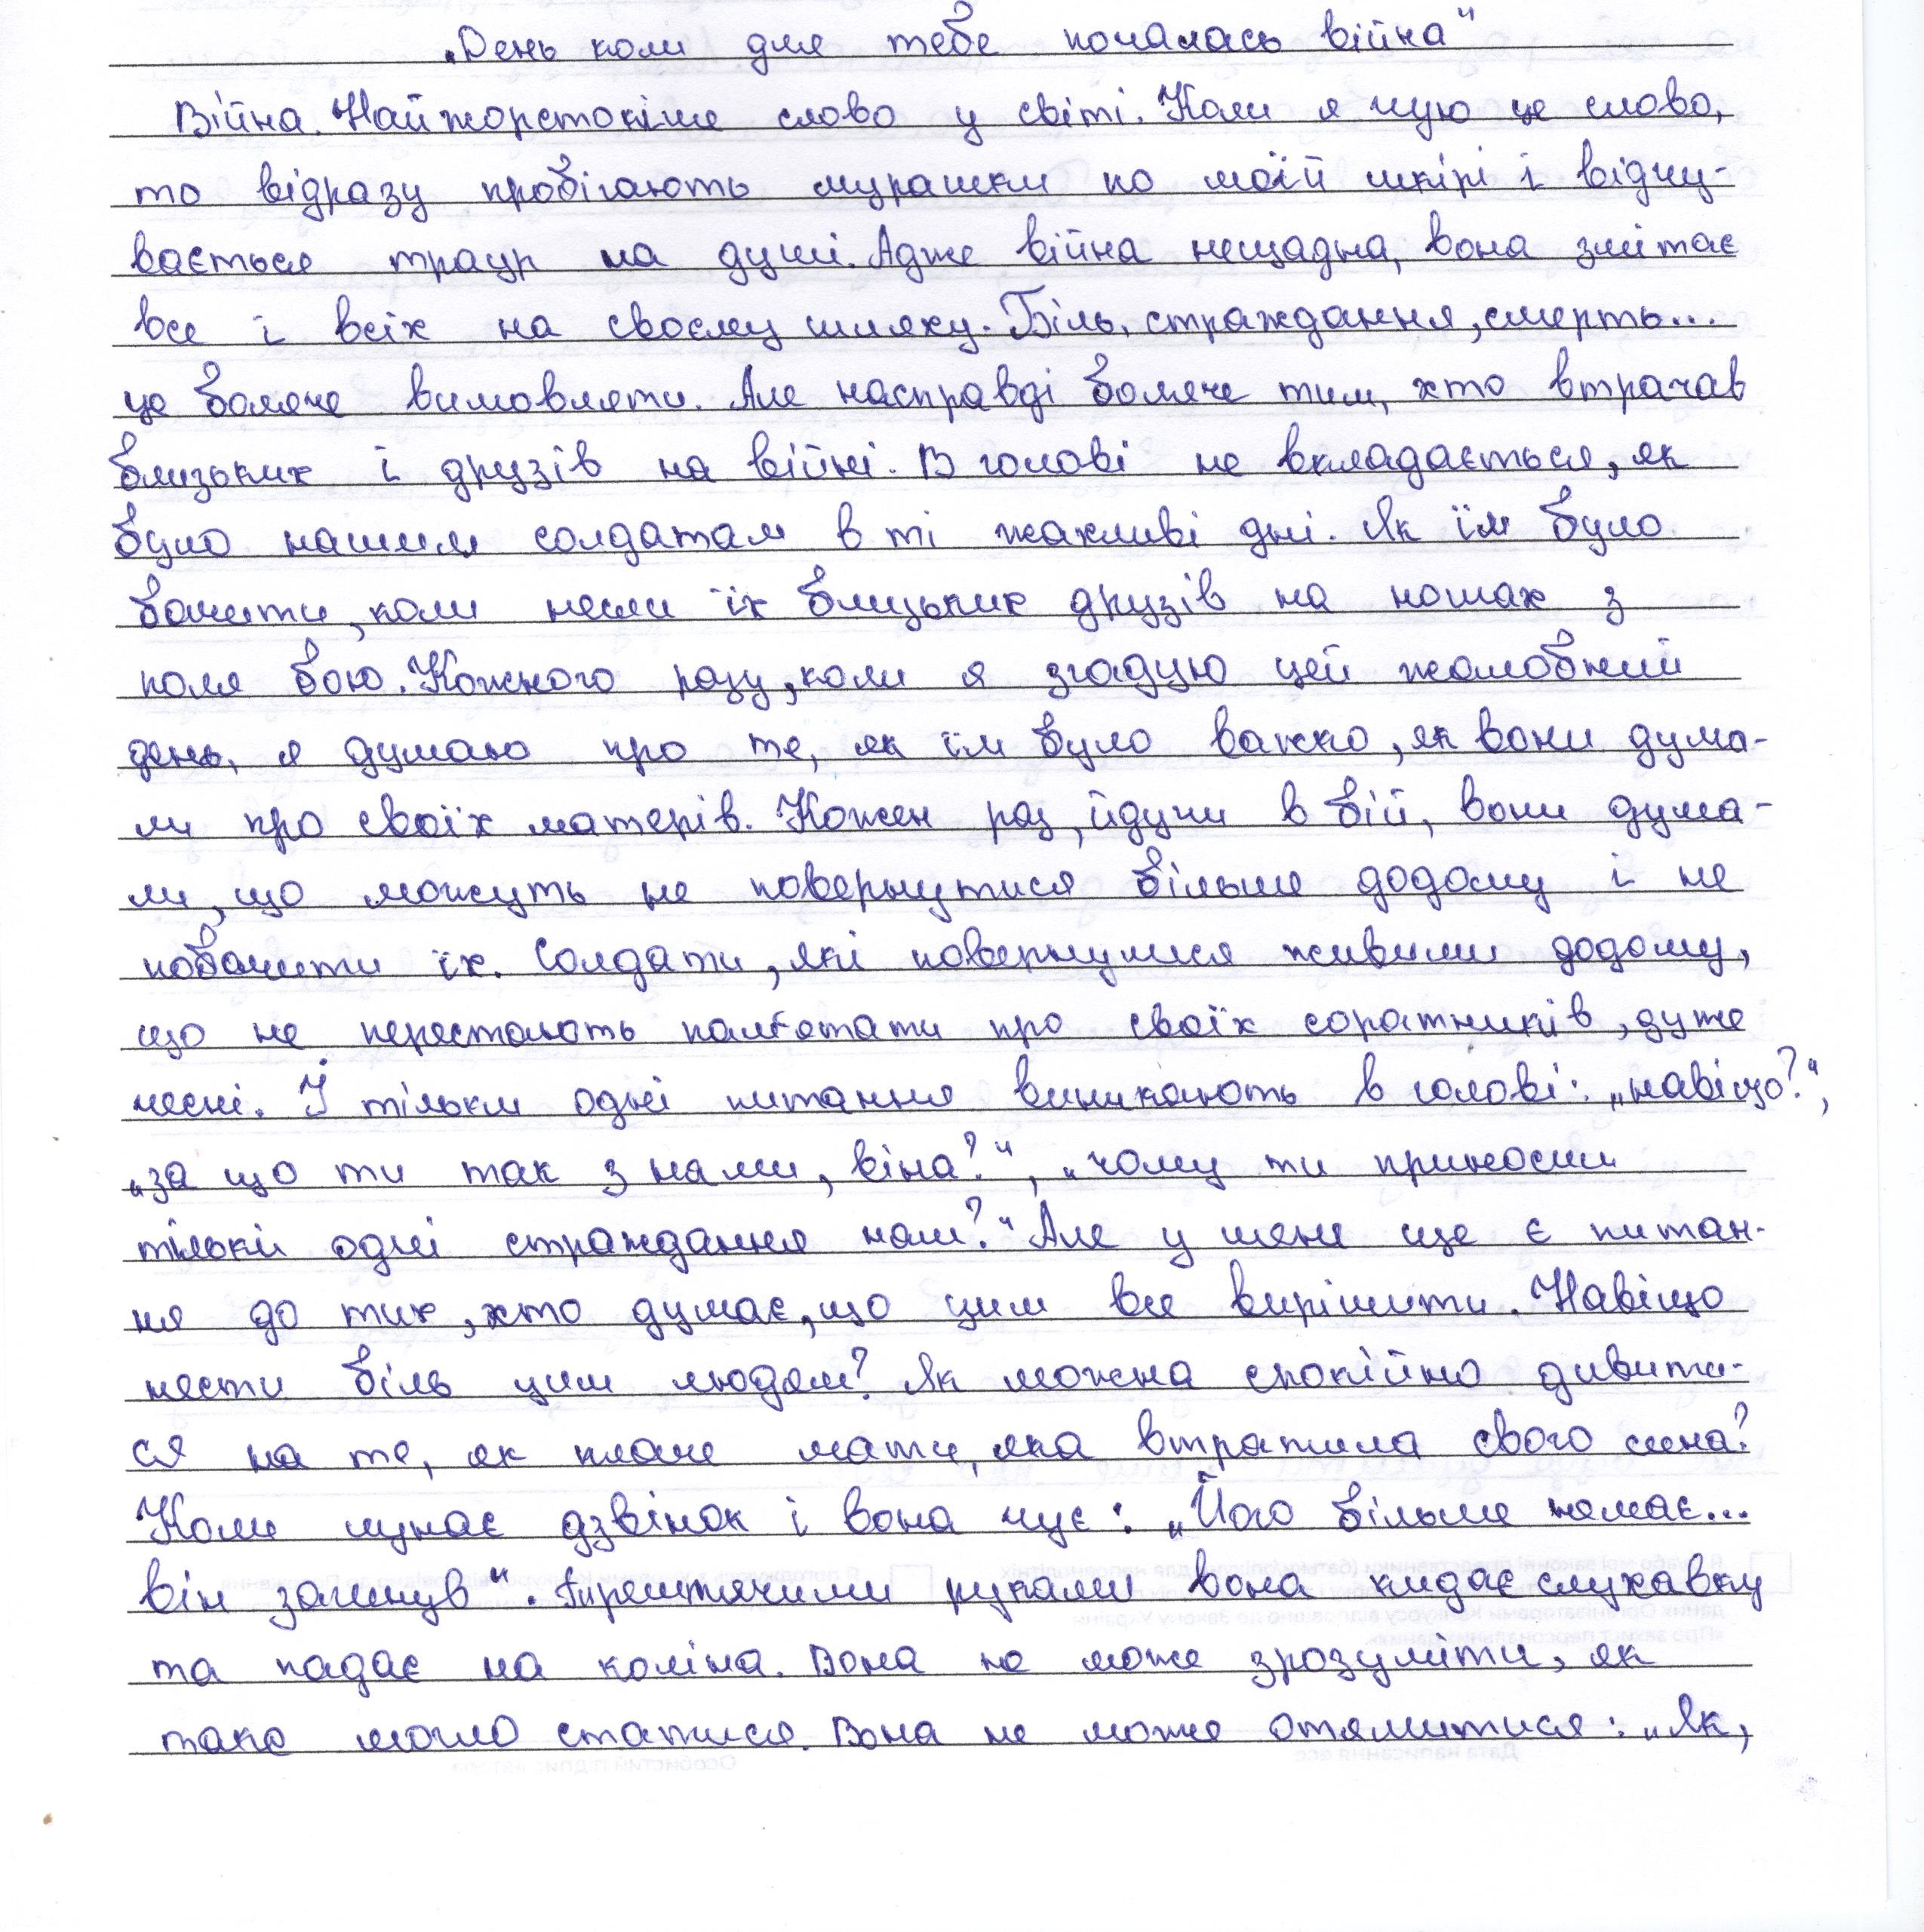 „День коли для тебе почалась війна"
Війна. Найжорстокіше слово у світі. Коли я чую це слово,
то відразу пробігають мурашки по моїй шкірі і відчу-
вається траур на душі. Адже війна нещадна, вона змітає
все і всіх на своєму шляху. Біль, страждання, смерть...
це боляче вимовляти. Але насправді боляче тим, хто втрачав
близьких і друзів на війні. В голові не вкладається, як
було нашим солдатам в ті жахливі дні. Як їм було
бачити, коли несли їх близьких друзів на ношах з
поля бою. Кожного разу, коли я згадую цей жалобний
день, я думаю про те, як їм було важко, як вони дума-
ли про своїх матерів. Кожен раз, йдучи в бій, вони дума-
ли, що можуть не повернутися більше додому і не
побачити їх. Солдати, які повернулися живими додому,
що не перестають пам'ятати про своїх соратників, дуже
чесні. І тільки одні питання виникають в голові: „навіщо?",
„за що ти так з нами, віна?", „чому ти приносиш
тільки одні страждання нам?" Але у мене ще є питан-
ня до тих, хто думає, що цим все вирішити. Навіщо
нести біль цим людям? Як можна спокійно дивити-
ся на те, як плаче мати, яка втратила свого сина?
Коли лунає дзвінок і вона чує: „Його більше немає...
він загинув". Тремтячими руками вона кидає слухавку
та падає на коліна. Вона не може зрозуміти, як
таке могло статися. Вона не може отямитися: „Як,